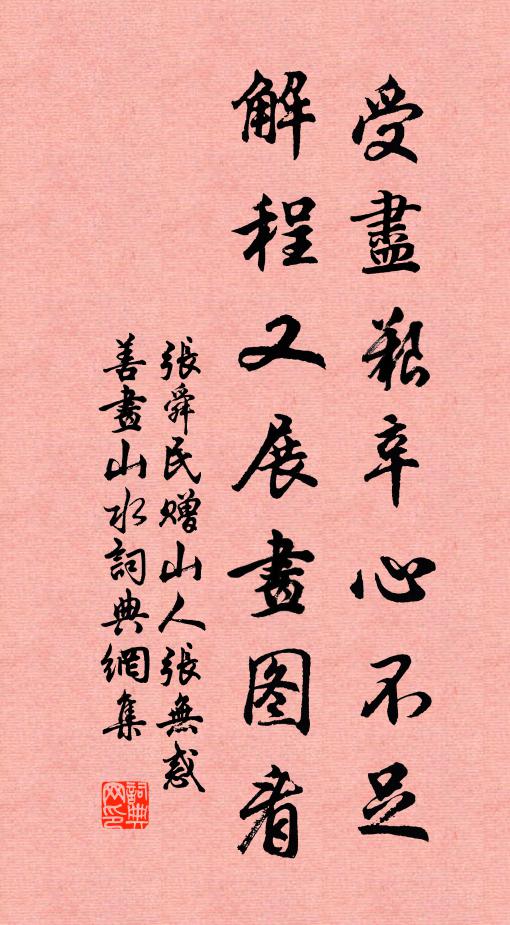 受盡艱辛心不足
解程又展畫图看
張舜民赠山人張無惑
善畫山水詞典網集
詞典网印